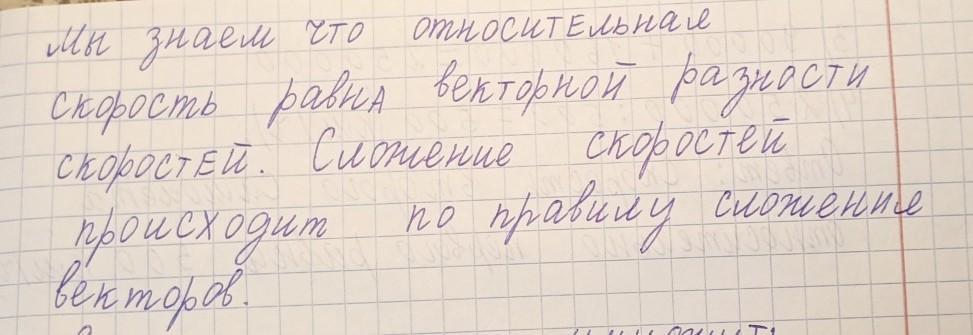 Мы знаем что относительная
скорость равна векторной разности
скоростей. Сложение скоростей
происходит по правилу сложения
векторов.